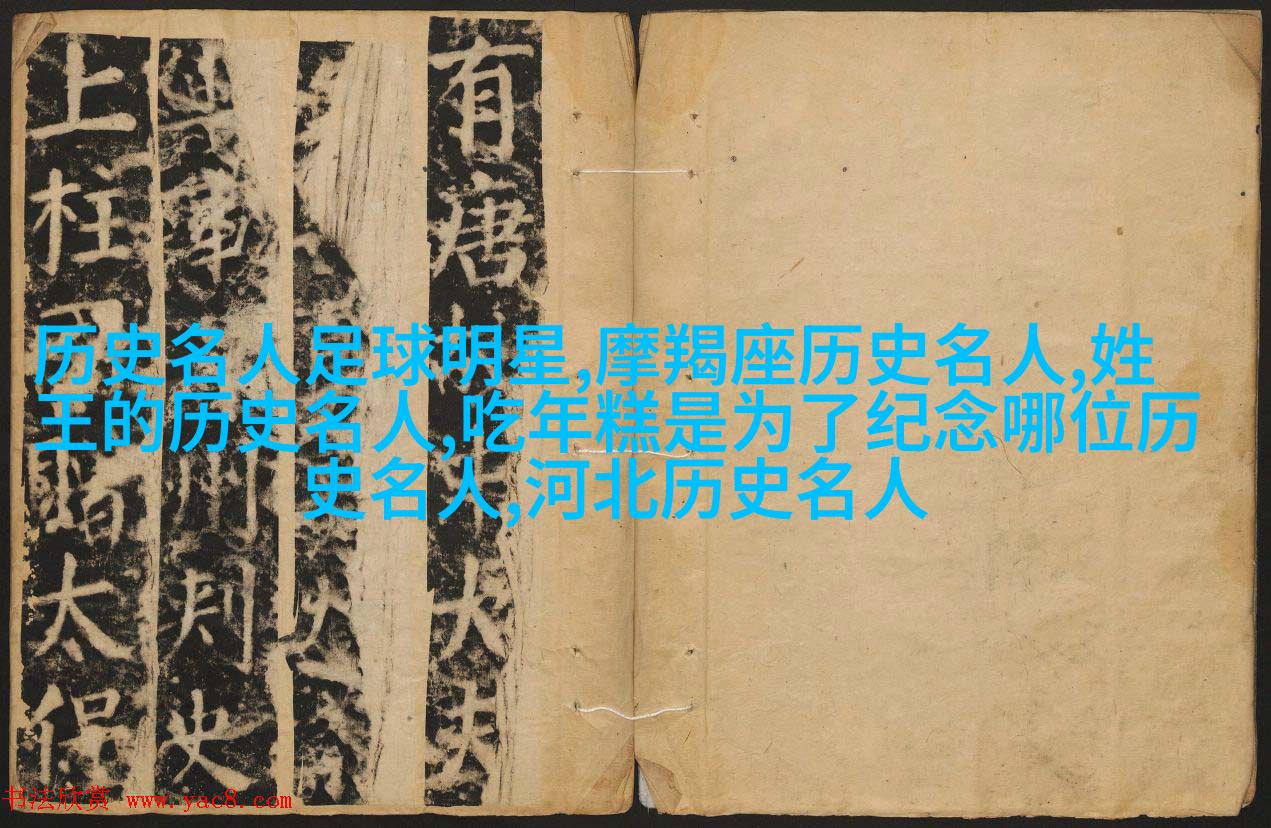 有唐大夫
軍州刺史
上柱國贈太保
历史名人足球明星,摩羯座历史名人,姓
王的历史名人,吃年糕是为了纪念哪位历
史名人,河北历史名人
书法欣赏 www.yac8.com